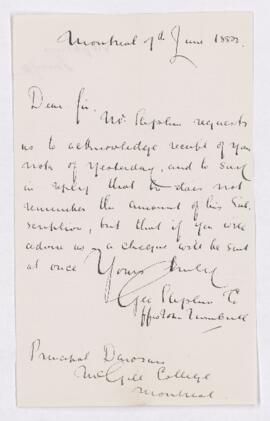 Montreal 7th June 1883.
Dear Sir.
Mr Stephen requests
us to acknowledge receipt of your
note of yesterday, and to say
in reply that he does not
remember the amount of his Sub-
scription, but that if you will
advise us a cheque will be sent
at once Yours truly
Geo Stephen Co
John Turnbull
Principal Dawson
McGill College
Montreal.